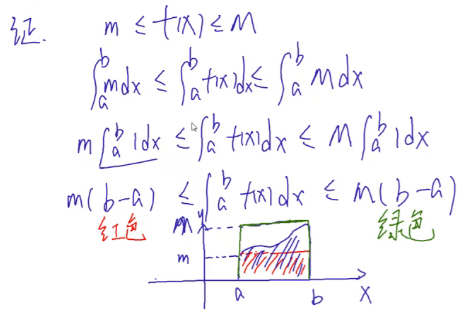 证. m ≤ f(x) ≤ M
∫_a^b mdx ≤ ∫_a^b f(x)dx ≤ ∫_a^b Mdx
m∫_a^b 1dx ≤ ∫_a^b f(x)dx ≤ M∫_a^b 1dx
m(b-a) ≤ ∫_a^b f(x)dx ≤ M(b-a)
红色 M y 绿色
m
a b x